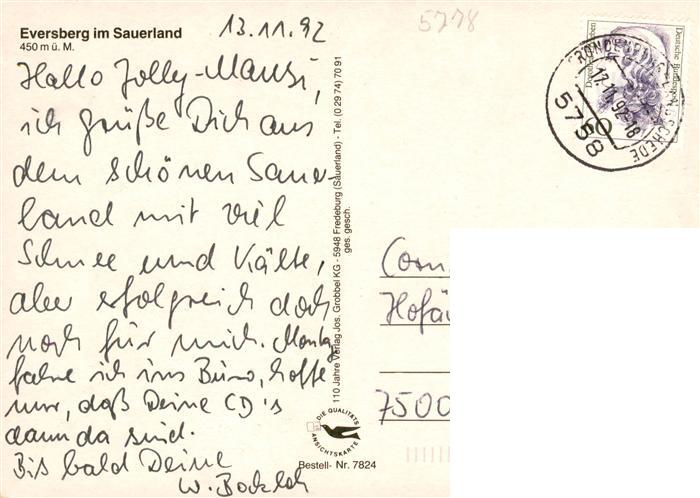 Eversberg im Sauerland
450 m ü. M.
13.11.92
5778
Hallo Jolly-Mausi,
ich grüße Dich aus
dem schönen Sauer-
land mit viel
Schnee und Kälte,
aber erfolgreich doch
noch für mich. Montag
fahre ich ins Büro, hoffe
nur, daß Deine CD's
dann da sind.
Bis bald Deine
W.
110 Jahre Verlag Jos. Grobbel KG - 5948 Fredeburg (Sauerland) - Tel. (0 29 74) 70 91
ges. gesch.
DIE QUALITÄTS
ANSICHTSKARTE
Bestell- Nr. 7824
Deutsche Bundespost
60
17.11.92-18
5758
Corn
Hofä
7500